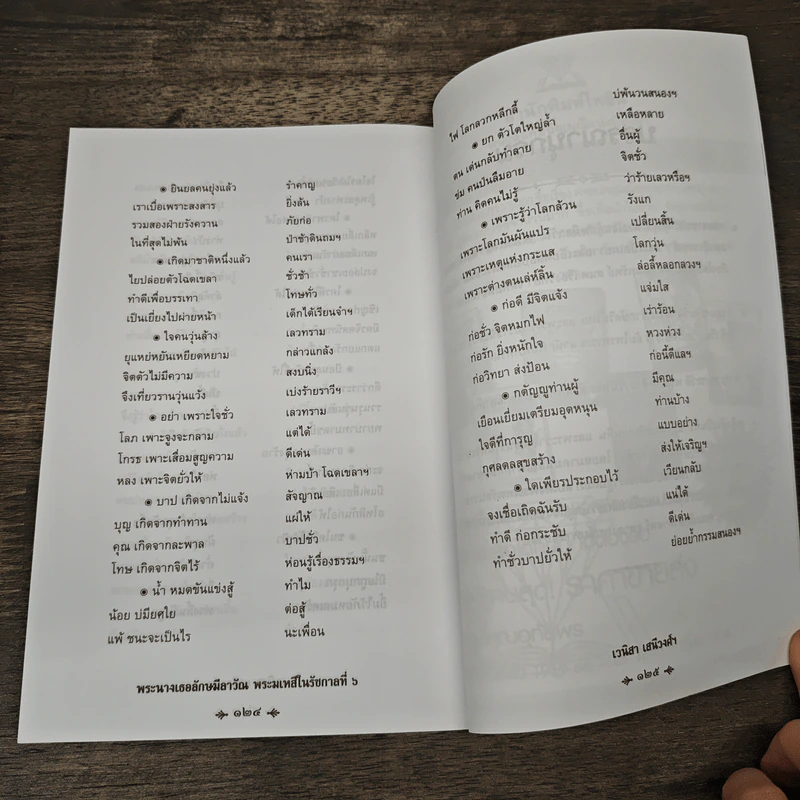 ◉ ยินยลคนยุ่งแล้ว รำคาญ
เราเบื่อเพราะสงสาร ยิ่งล้น
รวมสองฝ่ายรังควาน ภัยก่อ
ในที่สุดไม่พ้น ป่าช้าดินถมฯ
◉ เกิดมาชาติหนึ่งแล้ว คนเรา
ไยปล่อยตัวโฉดเขลา ชั่วช้า
ทำดีเพื่อบรรเทา โทษทั่ว
เป็นเยี่ยงไปฝ่ายหน้า เด็กได้เรียนจำฯ
◉ ใจคนวุ่นล้าง เลวทราม
ยุแหย่หยันเหยียดหยาม กล่าวแกล้ง
จิตตัวไม่มีความ สงบนิ่ง
จึงเที่ยวรานวุ่นแว้ง เบ่งร้ายราวีฯ
◉ อย่า เพราะใจชั่ว เลวทราม
โลภ เพาะจูงจะกลาม แต่ได้
โกรธ เพาะเสื่อมสูญความ ดีเด่น
หลง เพาะจิตยั่วให้ ห่ามบ้า โฉดเขลาฯ
◉ บาป เกิดจากไม่แจ้ง สัจญาณ
บุญ เกิดจากทำทาน แผ่ให้
คุณ เกิดจากละพาล บาปชั่ว
โทษ เกิดจากจิตไร้ ห่อนรู้เรื่องธรรมฯ
◉ น้ำ หมดขันแข่งสู้ ทำไม
น้อย บ่มียศไย ต่อสู้
แพ้ ชนะจะเป็นไร นะเพื่อน
พระนางเธอลักษมีลาวัณ พระมเหสีในรัชกาลที่ ๖
๑๒๔
ไฟ โลกลวกหลีกลี้ บ่พ้นวนสนองฯ
◉ ยก ตัวโตใหญ่ล้ำ เหลือหลาย
ตน เด่นกลับทำลาย อื่นผู้
ข่ม คนป่นลืมอาย จิตชั่ว
ท่าน คิดคนไม่รู้ ว่าร้ายเลวหรือฯ
◉ เพราะรู้ว่าโลกล้วน รังแก
เพราะโลกมันผันแปร เปลี่ยนสิ้น
เพราะเหตุแห่งกระแส โลกวุ่น
เพราะต่างตนเล่ห์ลิ้น ล่อลี้หลอกลวงฯ
◉ ก่อดี มีจิตแจ้ง แจ่มใส
ก่อชั่ว จิตหมกไฟ เร่าร้อน
ก่อรัก ยิ่งหนักใจ หวงห่วง
ก่อวิทยา ส่งป้อน ก่อนี้ดีแลฯ
◉ กตัญญูท่านผู้ มีคุณ
เยือนเยี่ยมเตรียมอุดหนุน ท่านบ้าง
ใจดีที่การุญ แบบอย่าง
กุศลดลสุขสร้าง ส่งให้เจริญฯ
◉ ใดเพียรประกอบไว้ เวียนกลับ
จงเชื่อเถิดฉันรับ แน่ได้
ทำดี ก่อกระชับ ดีเด่น
ทำชั่วบาปยั่วให้ ย่อยย้ำกรรมสนองฯ
เวนิสา เสนีวงศ์ฯ
๑๒๕